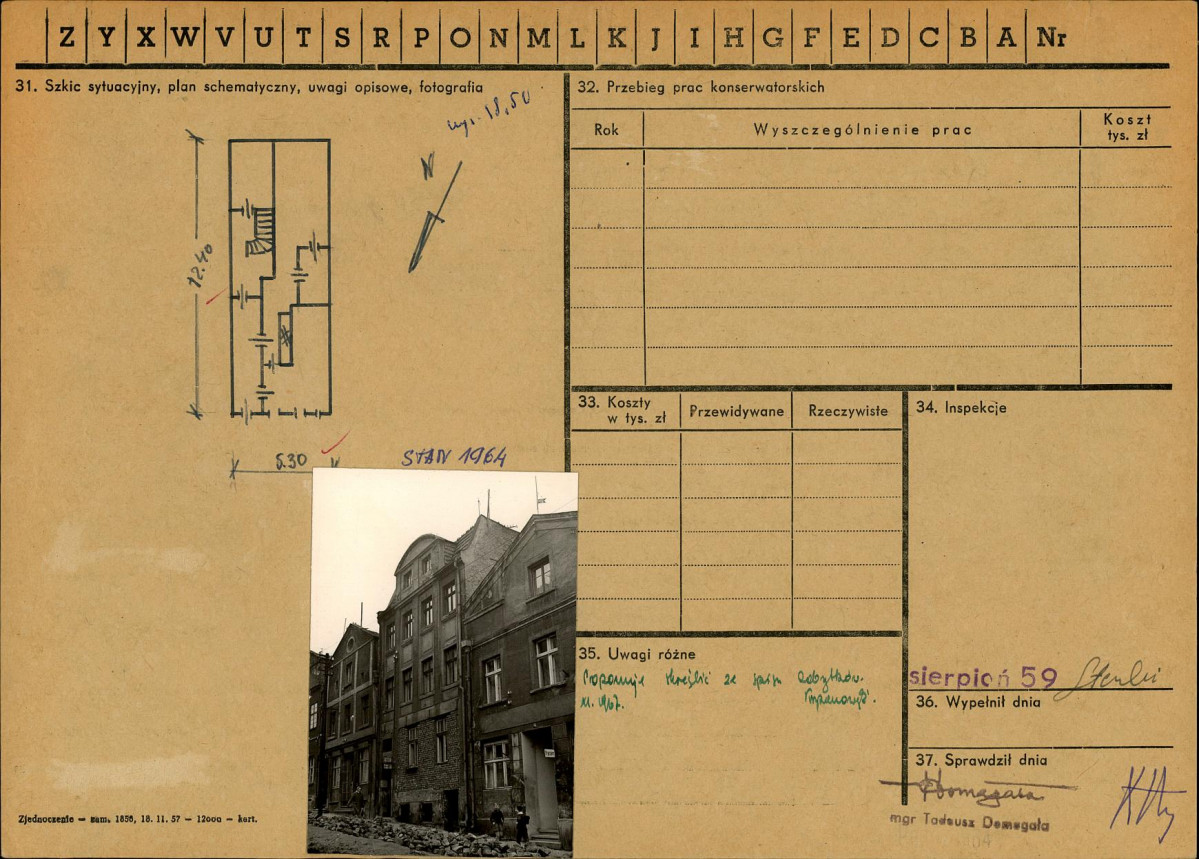 Z Y X W V U T S R P O N M L K J I H G F E D C B A Nr
31. Szkic sytuacyjny, plan schematyczny, uwagi opisowe, fotografia
wys. 18,50
N
12.40
5.30
STAN 1964
32. Przebieg prac konserwatorskich
Rok
Wyszczególnienie prac
Koszt
tys. zł
33. Koszty
w tys. zł
Przewidywane
Rzeczywiste
34. Inspekcje
35. Uwagi różne
Proponuje skreślić ze spisu zabytków.
11. 1967.
sierpień 59
36. Wypełnił dnia
37. Sprawdził dnia
Domagała
mgr Tadeusz Domagała
Zjednoczenie — zam. 1856, 18. 11. 57 — 12000 — kart.